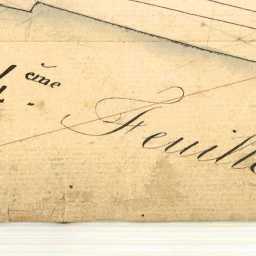 4.ème Feuille